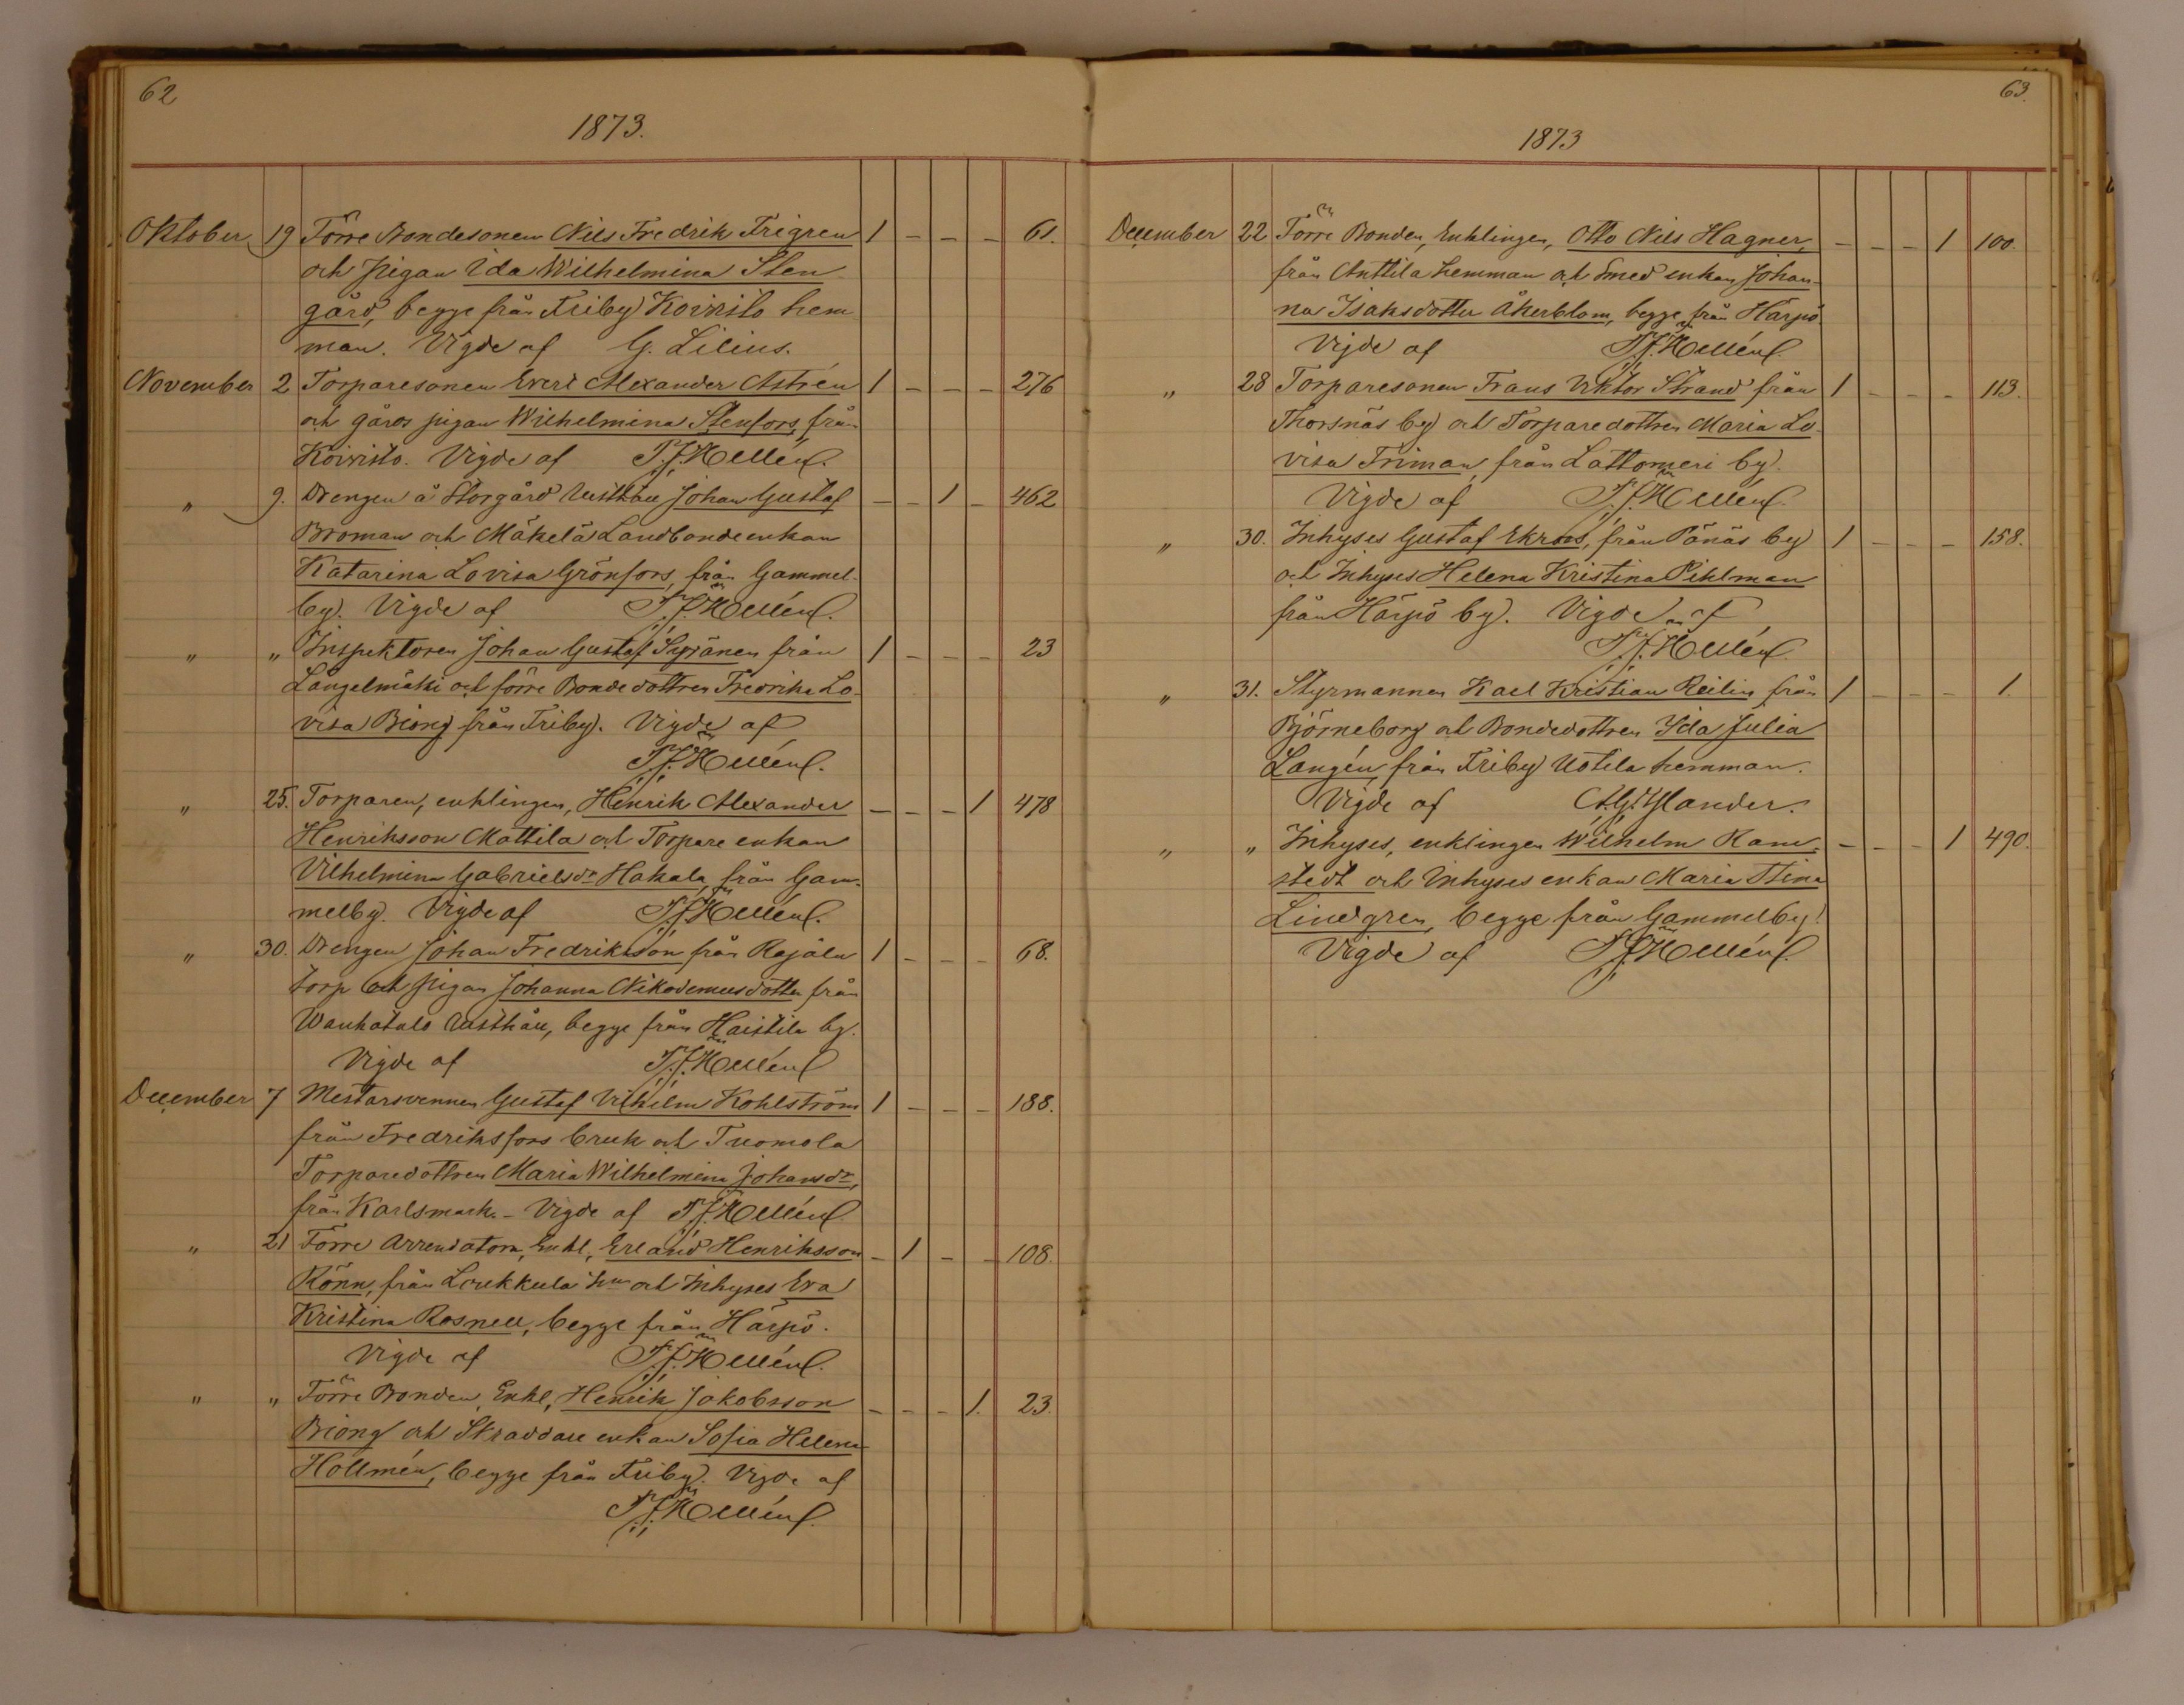 62
1873.
Oktober 19 Förre Bondesonen Nils Fredrik Frigren 1 - - - 61.
och pigan Ida Wilhelmina Sten-
gård, begge från Friby Koivisto hem
man. Vigde af G. Lilius.
November 2 Torparesonen Evert Alexander Astrén 1 - - - 276
och gårds pigan Wilhelmina Stenfors, från
Koivisto. Vigde af T.J. Hellén.
„ 9. Drengen å Storgård Rusthåll Johan Gustaf - - 1 - 462
Broman och Mäkelä Landbonde enkan
Katarina Lovisa Grönfors, från Gammel-
by. Vigde af T.J. Hellén.
„ „ Inspektoren Johan Gustaf Syränen från 1 - - - 23
Längelmäki och förre Bonde dottren Fredrika Lo-
visa Biong från Friby. Vigde af
T.J. Hellén.
„ 25. Torparen, enklingen, Henrik Alexander - - - 1 478
Henriksson Mattila och Torpare enkan
Vilhelmina Gabrielsdr Hakala, från Gam-
melby. Vigde af T.J. Hellén.
„ 30. Drengen Johan Fredriksson från Rajala 1 - - - 68.
torp och pigan Johanna Nikodemusdotter från
Wanhatalo Rusthåll, begge från Haistila by.
Vigde af T.J. Hellén
December 7 Mestarsvennen Gustaf Vilhelm Kohlström 1 - - - 188.
från Fredriksfors bruk och Tuomola
Torparedottren Maria Wilhelmina Johansdr,
från Karlsmark. - Vigde af T.J. Hellén
„ 21 Förre Arrendatorn, Enkl, Erland Henriksson - 1 - - 108.
Rönn, från Loukkula hmn och Inhyses Eva
Kristina Rosnell, begge från Härpö.
Vigde af T.J. Hellén.
„ „ Förre Bonden, Enkl, Henrik Jakobsson - - - 1. 23.
Biong och Skraddare enkan Sofia Helena
Hollmén, begge från Friby. Vigde af
T.J. Hellén.
63.
1873
December 22 Förre Bonden, Enklingen, Otto Nils Hagner, - - - 1 100.
från Anttila hemman och Smed enkan Johan-
na Isaksdotter Åkerblom, begge från Härpö.
Vigde af T.J. Hellén.
„ 28 Torparesonen Frans Viktor Strand från 1 - - - 113.
Thorsnäs by och Torparedottren Maria Lo-
visa Friman, från Lattomeri by.
Vigde af T.J. Hellén.
„ 30. Inhyses Gustaf Ekroos, från Pänäs by 1 - - - 158.
och Inhyses Helena Kristina Pihlman
från Härpö by. Vigde af
T.J. Hellén
„ 31. Styrmannen Karl Kristian Reilin från 1 - - - 1.
Björneborg och Bondedottren Ida Julia
Langén, från Friby Uotila hemman.
Vigde af
„ „ Inhyses, enklingen Wilhelm Ram- - - - 1 490.
stedt och Inhyses enkan Maria Stina
Lindgren, begge från Gammelby.
Vigde af T.J. Hellén.